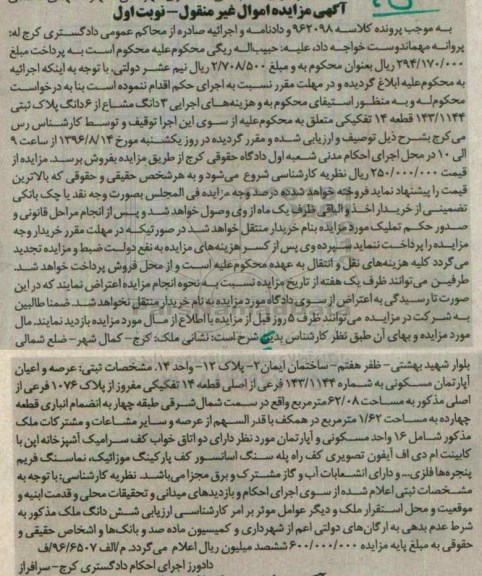 آگهی مزایده اموال غیر منقول – نوبت اول
به موجب پرونده کلاسه ۹۶۲۰۹۸ و دادنامه و اجرائیه صادره از محاکم عمومی دادگستری کرج له:
پروانه مهماندوست خواجه داد، علیه: حبیب‌اله ریگی محکوم‌علیه محکوم است به پرداخت مبلغ
۲۹۴/۱۷۰/۰۰۰ ریال بعنوان محکوم به و مبلغ ۲/۷۰۸/۵۰۰ ریال نیم عشر دولتی، با توجه به اینکه اجرائیه
به محکوم‌علیه ابلاغ گردیده و در مهلت مقرر نسبت به اجرای حکم اقدام ننموده است بنا به درخواست
محکوم‌له و به منظور استیفای محکوم به و هزینه‌های اجرایی ۳ دانگ مشاع از ۶ دانگ پلاک ثبتی
۱۴۳/۱۱۴۴ قطعه ۱۴ تفکیکی متعلق به محکوم‌علیه از سوی این اجرا توقیف و توسط کارشناس رس
می کرج بشرح ذیل توصیف و ارزیابی شده و مقرر گردیده در روز یکشنبه مورخ ۱۳۹۶/۸/۱۴ از ساعت ۹
الی ۱۰ در محل اجرای احکام مدنی شعبه اول دادگاه حقوقی کرج از طریق مزایده بفروش برسد. مزایده از
قیمت ۲۵۰/۰۰۰/۰۰۰ ریال نظریه کارشناسی شروع می‌شود و به هرشخص حقیقی و حقوقی که بالاترین
قیمت را پیشنهاد نماید فروخته خواهد شد ده درصد وجه مزایده فی المجلس بصورت وجه نقد یا چک بانکی
تضمینی از خریدار اخذ و الباقی ظرف یک ماه از وی وصول خواهد شد و پس از انجام مراحل قانونی و
صدور حکم تملیک مورد مزایده بنام خریدار منتقل خواهد شد در صورتیکه در مهلت مقرر خریدار وجه
مزایده را پرداخت ننماید سپرده وی پس از کسر هزینه‌های مزایده به نفع دولت ضبط و مزایده تجدید
می گردد کلیه هزینه‌های نقل و انتقال به عهده محکوم‌علیه است و از محل فروش پرداخت خواهد شد.
طرفین می توانند ظرف یک هفته از تاریخ مزایده نسبت به نحوه انجام مزایده اعتراض نمایند که در این
صورت تا رسیدگی به اعتراض از سوی دادگاه مورد مزایده به نام خریدار منتقل نخواهد شد. ضمنا طالبین
به شرکت در مزایده می توانند ظرف ۵ روز قبل از مزایده با اطلاع از مال مورد مزایده بازدید نمایند. مال
مورد مزایده و بهای آن طبق نظر کارشناس بدین شرح است: نشانی ملک: کرج – کمال شهر – ضلع شمالی
بلوار شهید بهشتی – ظفر هفتم – ساختمان ایمان ۲ – پلاک ۱۲ – واحد ۱۴. مشخصات ثبتی: عرصه و اعیان
آپارتمان مسکونی به شماره ۱۴۳/۱۱۴۴ فرعی از اصلی قطعه ۱۴ تفکیکی مفروز از پلاک ۱۰۷۶ فرعی از
اصلی مذکور به مساحت ۶۲/۰۸ مترمربع واقع در سمت شمال‌شرقی طبقه چهار به انضمام انباری قطعه
چهارده به مساحت ۱/۶۲ مترمربع در همکف با قدر السهم از عرصه و سایر مشاعات و مشترکات ملک
مذکور شامل ۱۶ واحد مسکونی و آپارتمان مورد نظر دارای دو اتاق خواب کف سرامیک آشپزخانه اپن با
کابینت ام دی اف آیفون تصویری کف راه پله سنگ آسانسور کف پارکینگ موزائیک، نماسنگ فریم
پنجره‌ها فلزی... و دارای انشعابات آب و گاز مشترک و برق مجزا می‌باشد. نظریه کارشناسی: با توجه به
مشخصات ثبتی اعلام شده از سوی اجرای احکام و بازدیدهای میدانی و تحقیقات محلی و قدمت ابنیه و
موقعیت و محل استقرار ملک و دیگر عوامل موثر بر امر کارشناسی ارزیابی شش دانگ ملک مذکور به
شرط عدم بدهی به ارگان‌های دولتی اعم از شهرداری و کمیسیون ماده صد و بانک‌ها و اشخاص حقیقی و
حقوقی به مبلغ پایه مزایده ۶۰۰/۰۰۰/۰۰۰ ششصد میلیون ریال اعلام می‌گردد. م/الف ۹۶/۶۵۰۷/ف
دادورز اجرای احکام دادگستری کرج – سرافراز